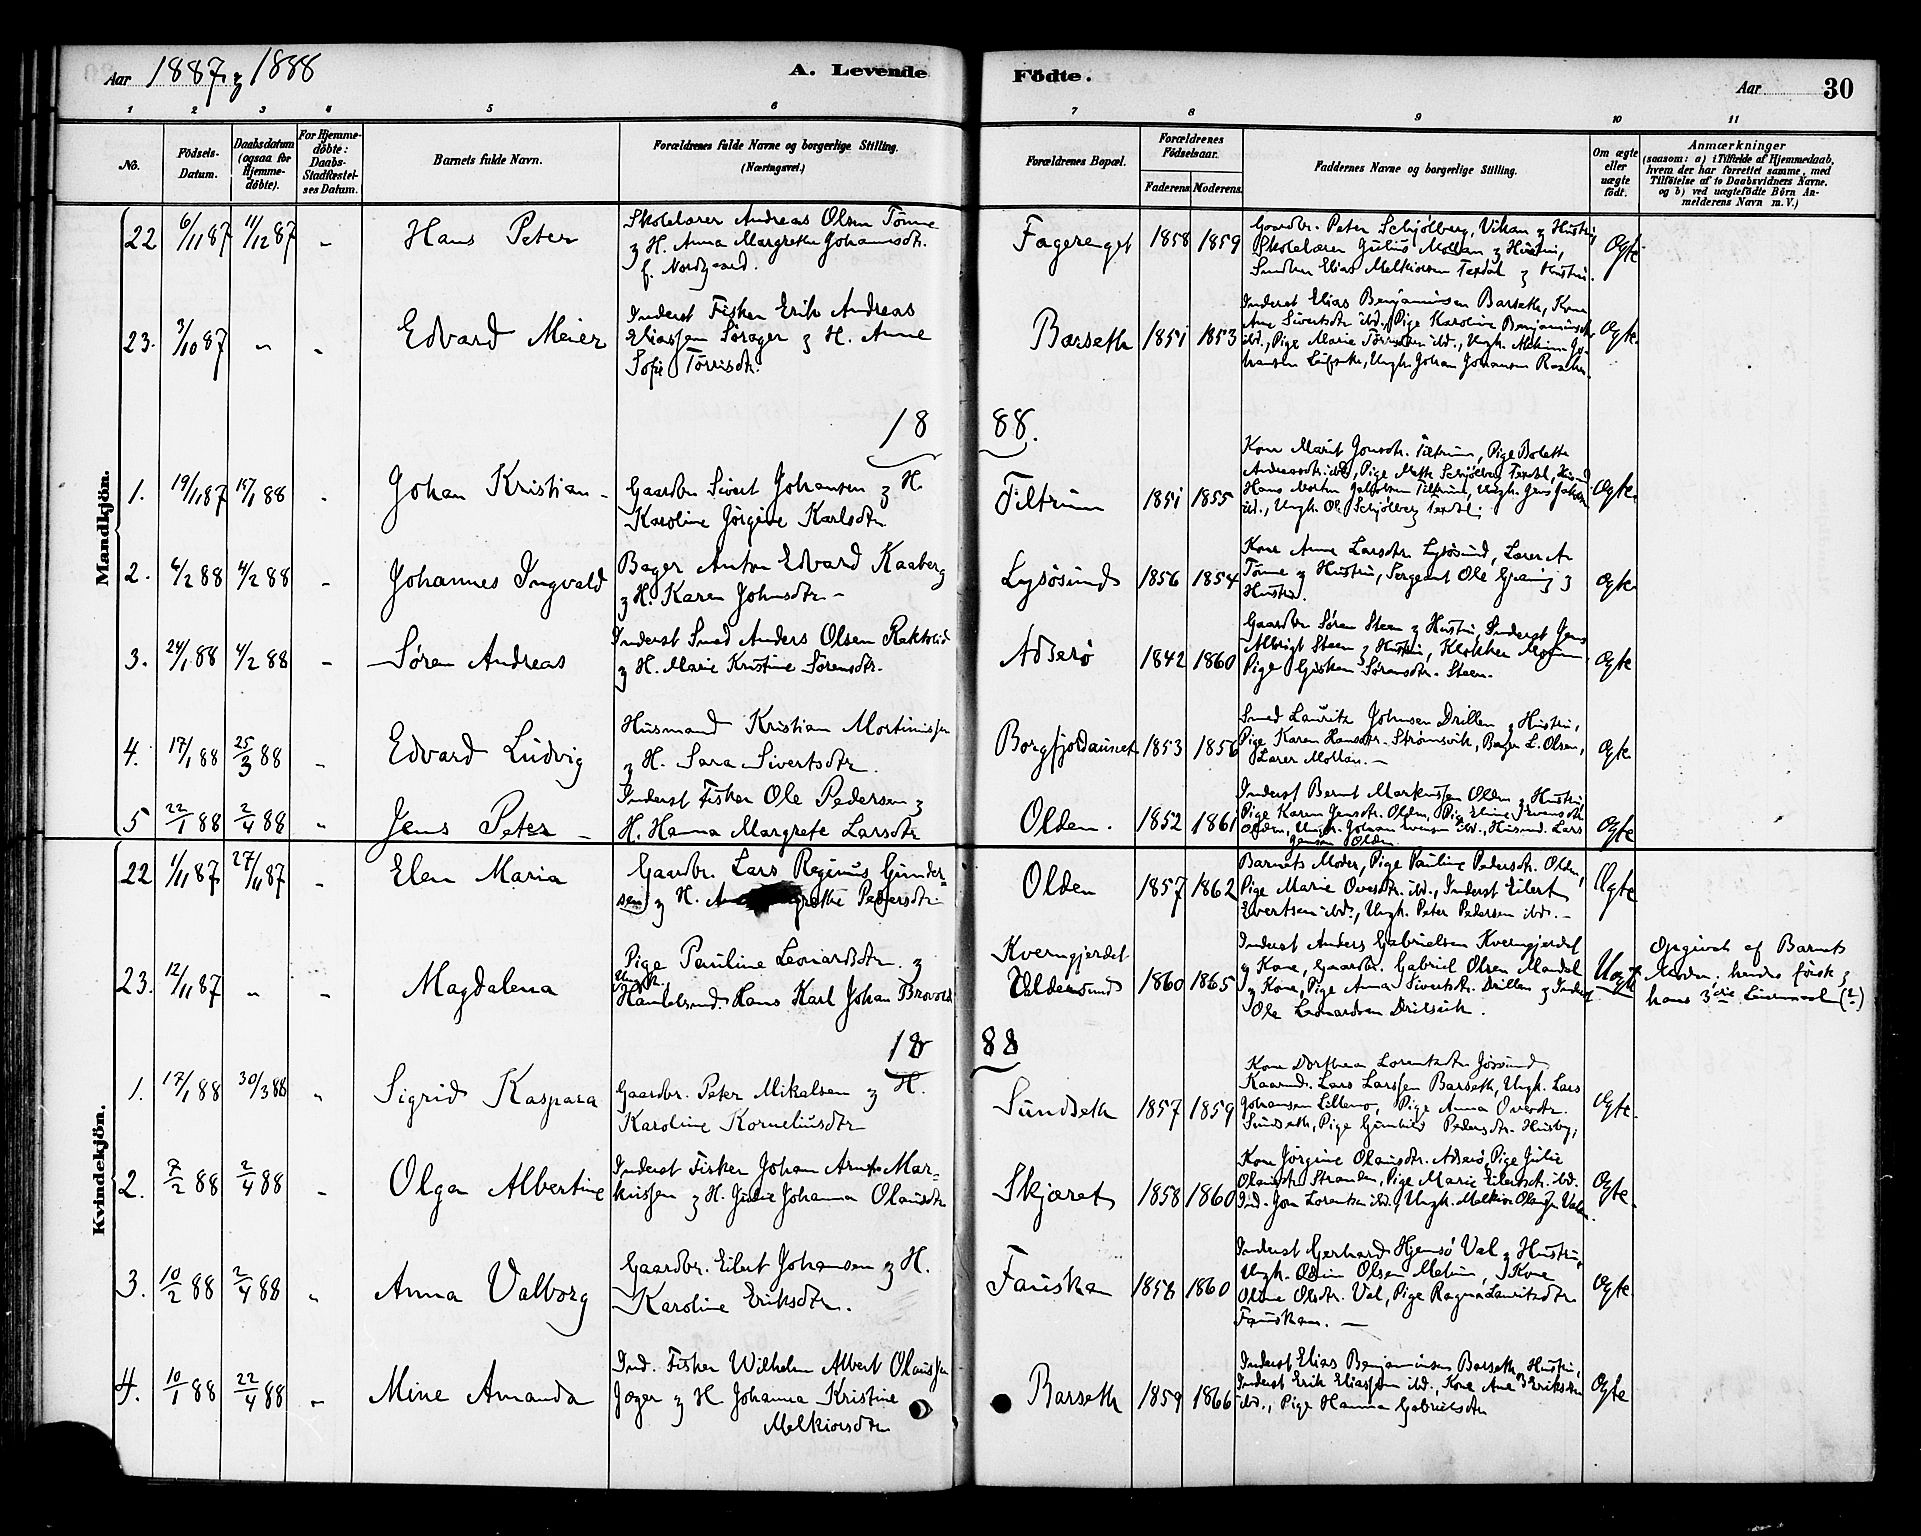 Aar 1887 & 1888
A. Levende
Födte.
Aar 30
1 2 3 4 5 6 7 8 9 10 11
No.
Födsels-Datum.
Daabsdatum (ogsaa för Hjemme-döbte).
For Hjemme-döbte: Daabs-Stadfæstel-ses Datum.
Barnets fulde Navn.
Forældrenes fulde Navne og borgerlige Stilling. (Næringsvei.)
Forældrenes Bopæl.
Forældrenes Födselsaar.
Faderens Moderens
Faddernes Navne og borgerlige Stilling.
Om ægte eller uægte födt.
Anmærkninger
(saasom: a) i Tilfælde af Hjemmedaab, hvem der har forrettet samme, med Tilföielse af to Daabsvidners Navne. og b) ved uægtefödte Börn An-melderens Navn m.V.)
Mandkjön.
22 6/11 87 11/12 87 " Hans Peter
Skolelærer Andreas Olsen Tönne
& H. Anna Margrethe Johannsdtr.
f. Nordgaard.
Fagerenget 1858 1859
Gaardbr. Peter Schjölberg, Vikan & Hustru,
Skolelærer Julius Mollan & Hustru,
Elias Melkiorsen Terdal & Hustru.
Ægte
23. 3/10 87 " " Edvard Meier
Inderst Fisker Erik Andreas
Eliassen Sörager & H. Anne
Sofie Törrisdtr.
Barseth 1851 1853
Inderst Elias Benjaminsen Barseth, Kone
Ane Sivertsdtr ibd., Pige Karoline Benjaminsdtr
ibd., Pige Marie ibd., Ungk.
Ungk. Johan Johansen
Ægte
1888.
1. 19/11 87 15/1 88 " Johan Kristian
Gaardbr Sivert Johansen & H.
Karoline Jörgine Karlsdtr
Tiltrum 1851 1855
Kone Marit Jonsdtr. Tiltrum, Pige Bolette
Andreasdtr. ibd., Pige Mette Schjölberg Terdal,
Hans Morten Jakobsen Tiltrum, Ungk. Jens
ibd., Ungk. Ole Schjölberg Terdal.
Ægte
2. 6/2 88 4/2 88 " Johannes Ingvald
Bager Anton Edvard Kaaberg
& H. Karen Johnsdtr.
Lysösund 1856 1854
Kone Anne Larsdtr. Lysösund, Lærer A.
Tönne & Hustru, Sergeant Ole &
Hustru.
Ægte
3. 24/1 88 4/2 88 " Sören Andreas
Inderst Smed Anders Olsen
& H. Marie Kristine Sörensdtr.
Adserö 1842 1860
Gaardbr Sören Steen & Hustru, Inderst Jens
Albrigt Steen & Hustru, Klokker
Pige Gjisken Sörensdtr. Steen.
Ægte
4. 17/1 88 25/3 88 " Edvard Ludvig
Husmand Kristian Mortinussen
& H. Sara Sivertsdtr.
Borgfjordaunet 1853 1856
Smed Lauritz Johnsen Drillen & Hustru,
Pige Karen Hansdtr. Strömsvik, Bager L. Olsen,
Lærer Mollan.
Ægte
5 22/1 88 2/4 88 " Jens Peter
Inderst Fisker Ole Pedersen &
H. Hanna Margrete Larsdtr
Olden. 1852 1861
Inderst Bernt Markussen Olden & Hustru,
Pige Karen Jensdtr. Olden, Pige Eline
Olden, Ungk. Johan ibd., Husmd. Lars
Jensen Olden
Ægte
Kvindekjön.
22 1/11 87 27/11 87 " Elen Maria
Gaardbr. Lars Reginus Gunder=
sen & H. Pedersdtr
Olden 1857 1862
Barnets Moder, Pige Pauline Pedersdtr. Olden,
Pige Marie Ovesdtr. ibd., Inderst Eilert
Evertsen ibd., Ungk. Peter Pedersen ibd.
Ægte
23. 12/11 87 " " Magdalena
Pige Pauline Leonardsdtr &
Ungk.
Handelsmd. Hans Karl Johan Brovold
Kverngjerdet
Uldersund 1860 1865
Inderst Anders Gabrielsen Kverngjerdet
& Kone, Gaardbr. Gabriel Olsen Mandal
& Kone, Pige Anna Sivertsdtr. Drillen & Inderst
Ole Leonardsen
Uægte
Opgivet af Barnets
Moder, hendes förste &
hans 3die Leiermaal (?)
1888
1. 17/1 88 30/3 88 " Sigrid Kaspara
Gaardbr. Peter Mikalsen & H.
Karoline Korneliusdtr
Sundseth 1857 1859
Kone Dorthea Lorentzdtr Jössund
Kaarmd. Lars Larssen Barseth, Ungk. Lars
Johansen Lillemo, Pige Anna Ovesdtr.
Sundseth, Pige Gunhild Pedersdtr. Husby,
Ægte
2. 7/2 88 2/4 88 " Olga Albertine
Inderst Fisker Johan Arnt Mar=
kussen & H. Julie Johanna Olausdtr
Skjæret 1858 1860
Kone Jörgine Olausdtr. Adserö, Pige Julie
Olausdtr Stranden, Pige Marie Eilertsdtr. ibd.
Ind. Jon Lorentsen ibd., Ungk. Melkior Olausen
Ægte.
3. 10/2 88 2/4 88 " Anna Valborg
Gaardbr. Eilert Johansen & H.
Karoline Eriksdtr.
Fauskan 1856 1860
Inderst Gerhard Hjemsö Val & Hustru,
Ungk. Olsen, Kone
Oline Olsdtr. Val, Pige Ragna Lauritzdtr
Fauskan.
Ægte
4. 10/1 88 22/4 88 " Mine Amanda
Ind. Fisker Wilhelm Albert Olaussen
& H. Johanna Kristine
Melkiorsdtr
Barseth 1859 1866
Inderst Elias Benjaminsen Barseth & Hustru,
Inderst Erik Eliassen ibd., Kone Ane Eriksdtr
ibd., Pige Hanna Gabrielsdtr
Ægte